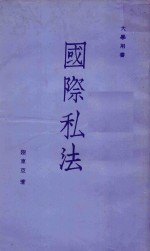 大學用書
國際私法
東亞 著